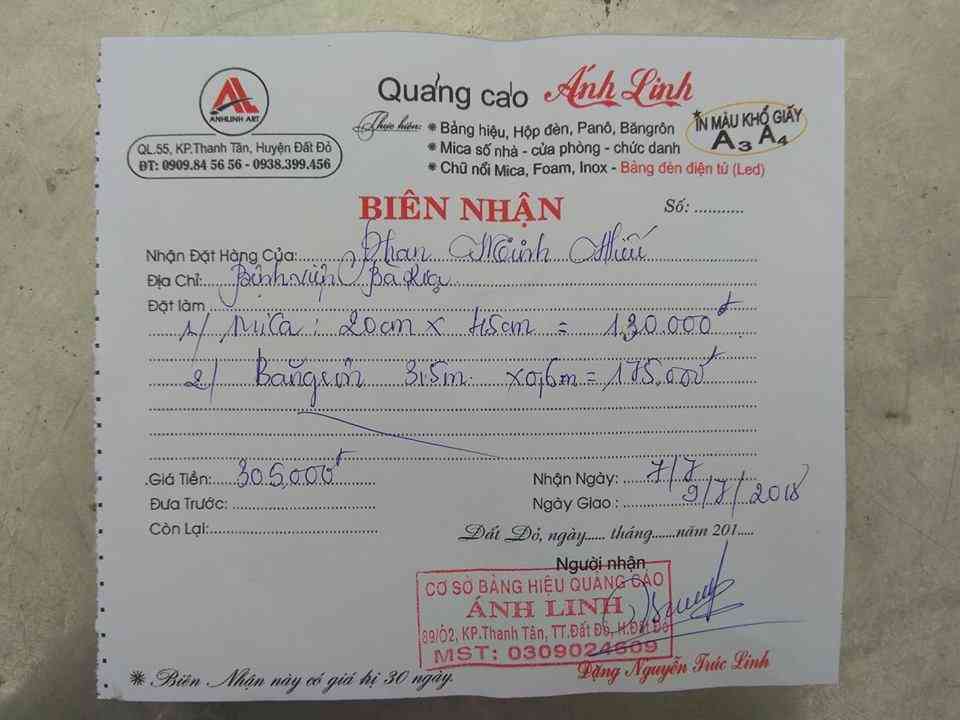 Quảng cáo Ánh Linh
ANHLINH ART
QL.55, KP.Thanh Tân, Huyện Đất Đỏ
ĐT: 0909.84 56 56 - 0938.399.456
Thực hiện: * Bảng hiệu, Hộp đèn, Panô, Băngrôn
* Mica số nhà - cửa phòng - chức danh
* Chữ nổi Mica, Foam, Inox - Bảng đèn điện tử (Led)
IN MÀU KHỔ GIẤY
A3 A4
BIÊN NHẬN
Số: ...........
Nhận Đặt Hàng Của: Phan Minh Hiếu
Địa Chỉ: Bệnh viện Bà Rịa
Đặt làm
1/ Mica: 20cm x 45cm = 130.000đ
2/ Băngrôn 3,5m x 0,6m = 175.000đ
Giá Tiền: 305,000đ
Nhận Ngày: 7/7
Đưa Trước:
Ngày Giao: 9/7/2018
Còn Lại:
Đất Đỏ, ngày...... tháng.......năm 201.....
Người nhận
CƠ SỞ BẢNG HIỆU QUẢNG CÁO
ÁNH LINH
89/Ô2, KP.Thanh Tân, TT.Đất Đỏ, H.Đất Đỏ
MST: 0309024609
Đặng Nguyễn Trúc Linh
* Biên Nhận này có giá trị 30 ngày.